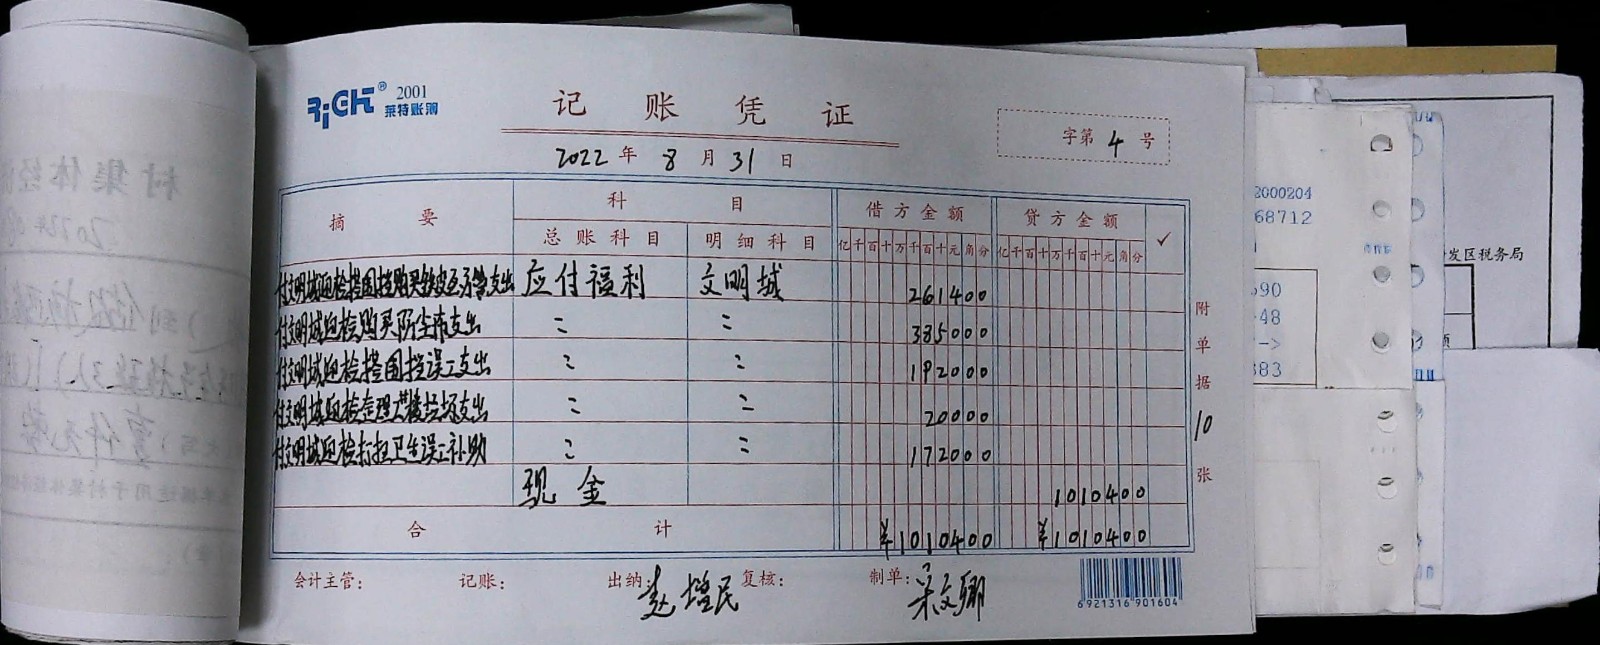 RiGHT® 2001
莱特账簿
记账凭证
字第 4 号
2022 年 8 月 31 日
摘要 科目 借方金额 贷方金额 ✓
总账科目 明细科目 亿千百十万千百十元角分 亿千百十万千百十元角分
付文明城迎检搭围挡购买铁皮等支出 应付福利 文明城 261400
付文明城迎检购买防尘布支出 〃 〃 385000
付文明城迎检搭围挡误工支出 〃 〃 192000
付文明城迎检整理垃圾支出 〃 〃 20000
付文明城迎检打扫卫生误工补助 〃 〃 172000
现金 1010400
合计 ¥1010400 ¥1010400
附单据 10 张
会计主管: 记账: 出纳 赵增民 复核: 制单: 宋文卿
6 921316 901604
2000204
68712
590
-48
->
383
发区税务局
村集体经济